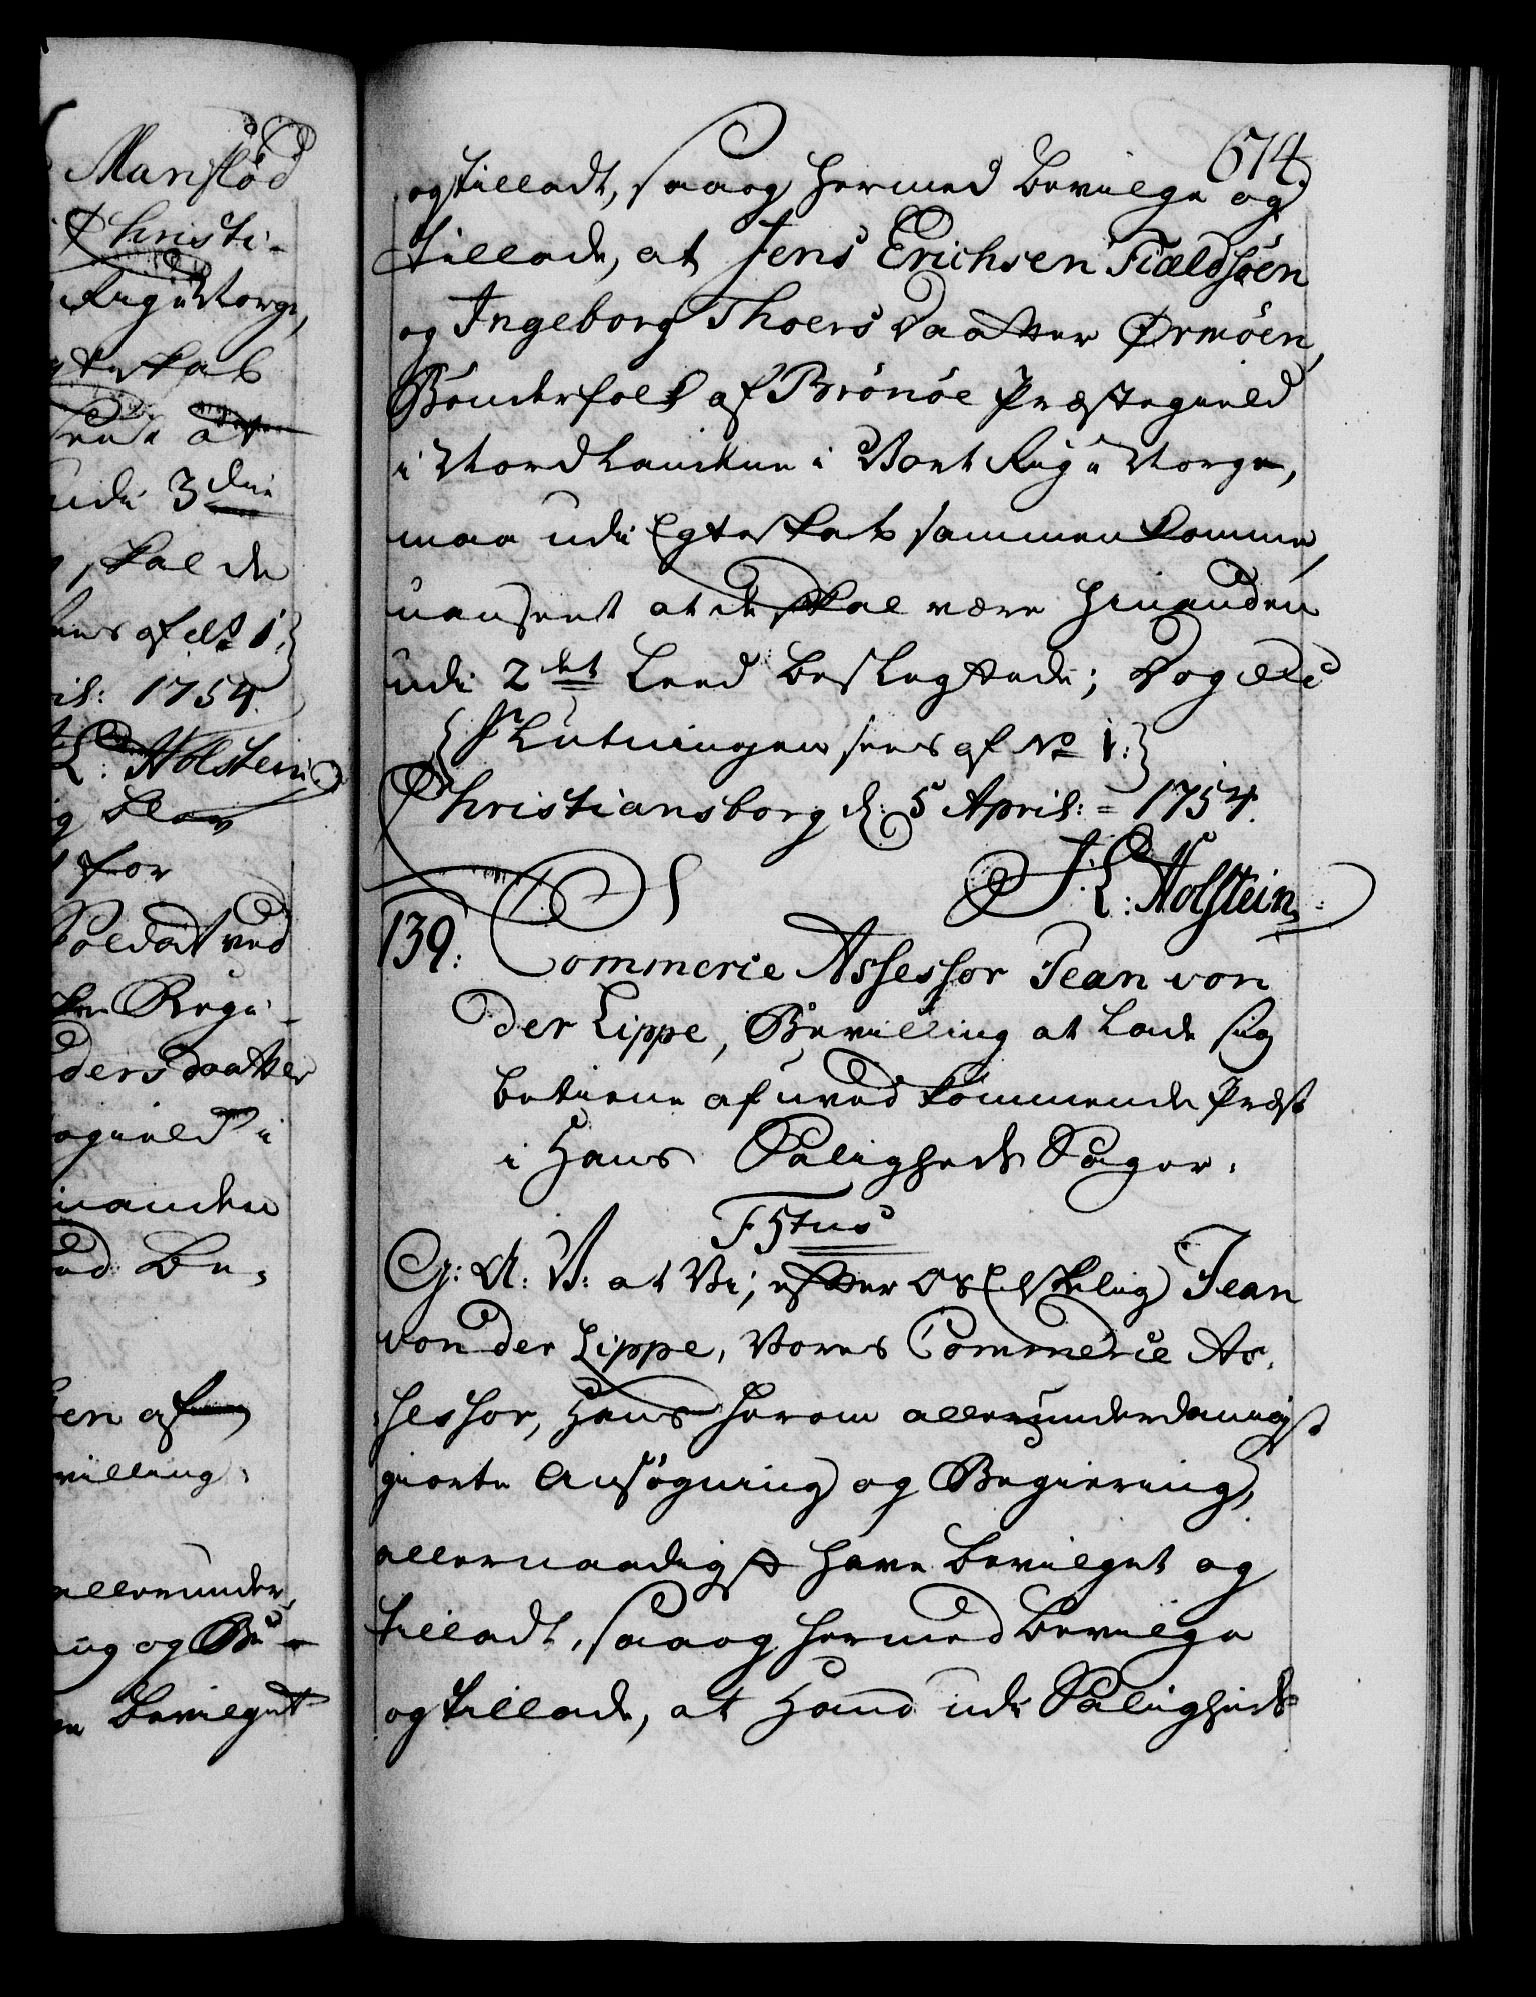 Mariflød
Christi-
Rige Norge,
egteskab
at
udi 3die
skal de
sees af No 1.
ril: 1754.
L: Holstein
blev
for
Soldat ved
Regi-
dersdaatter
ogield i
inanden
Be-
sen af
villing.
allerunder-
ng og Be-
bevilget
674.
og tilladt, saa og hermed bevilge og
tillade, at Jens Erichsen Fieldsøen
og Ingeborg Thoersdaatter Ørmøen,
Bønderfolk af Brønøe Præstegield
i Nordlandene i Vort Rige Norge,
maa udi Egteskab sammenkomme,
uanseet at de skal være hinanden
udi 2det Leed beslegtede; Dog etc
{Slutningen sees af No 1:}
Christiansborg d: 5 April: 1754.
J. L: Holstein
139: Commerie Assessor Jean von
der Lippe, Bevilling at lade sig
betiene af uvedkommende Præst
i Hans Saligheds Sager.
F5tus
G: A: V: at Vi, efter Os Elskelig Jean
von der Lippe, Vores Commerie As-
sessor, Hans herom allerunderdanigst
giorte Ansøgning og Begiering,
allernaadigst have bevilget og
tilladt, saa og hermed bevilge
og tillade, at Hand udi Saligheds